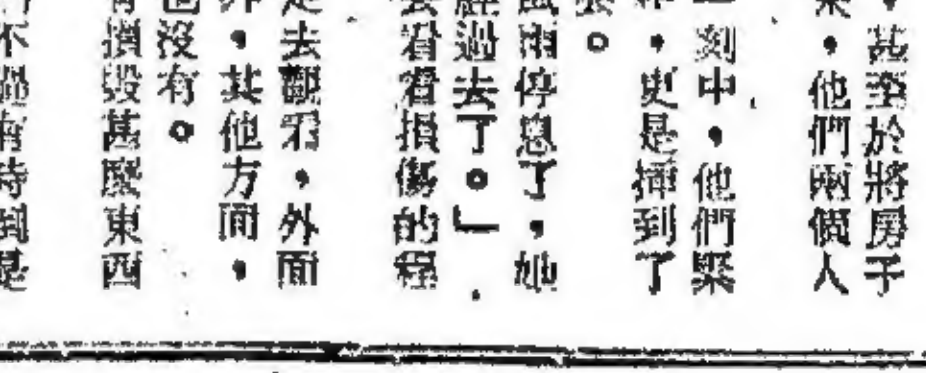 ，甚至於將房子
，他們兩個人
一刻中，他們緊
，更是揮到了
。
風雨停息了，她
經過去了。」
去看看損傷的程
走去觀看，外面
外，其他方面，
也沒有。
有損毀甚麼東西
不過有時倒是